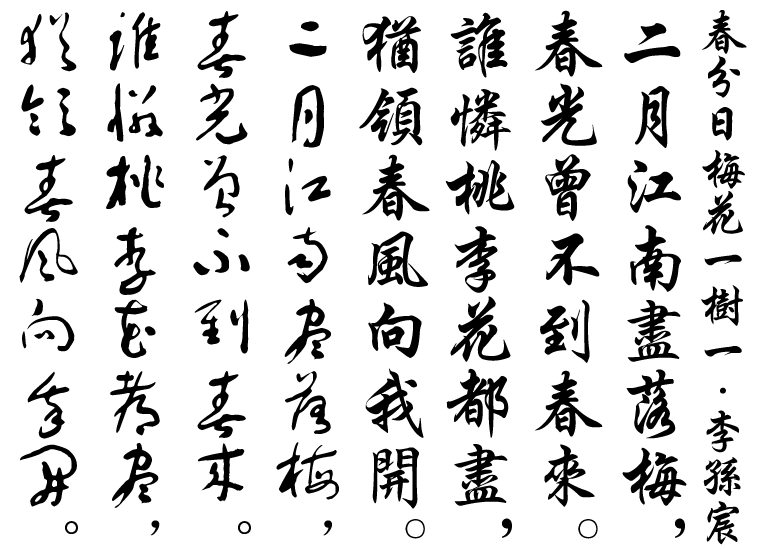 春分日梅花一樹一·李孫宸
二月江南盡落梅，
春光曾不到春來。
誰憐桃李花都盡，
猶領春風向我開。
二月江南盡落梅，
春光曾不到春來。
誰憐桃李花都盡，
猶領春風向我開。